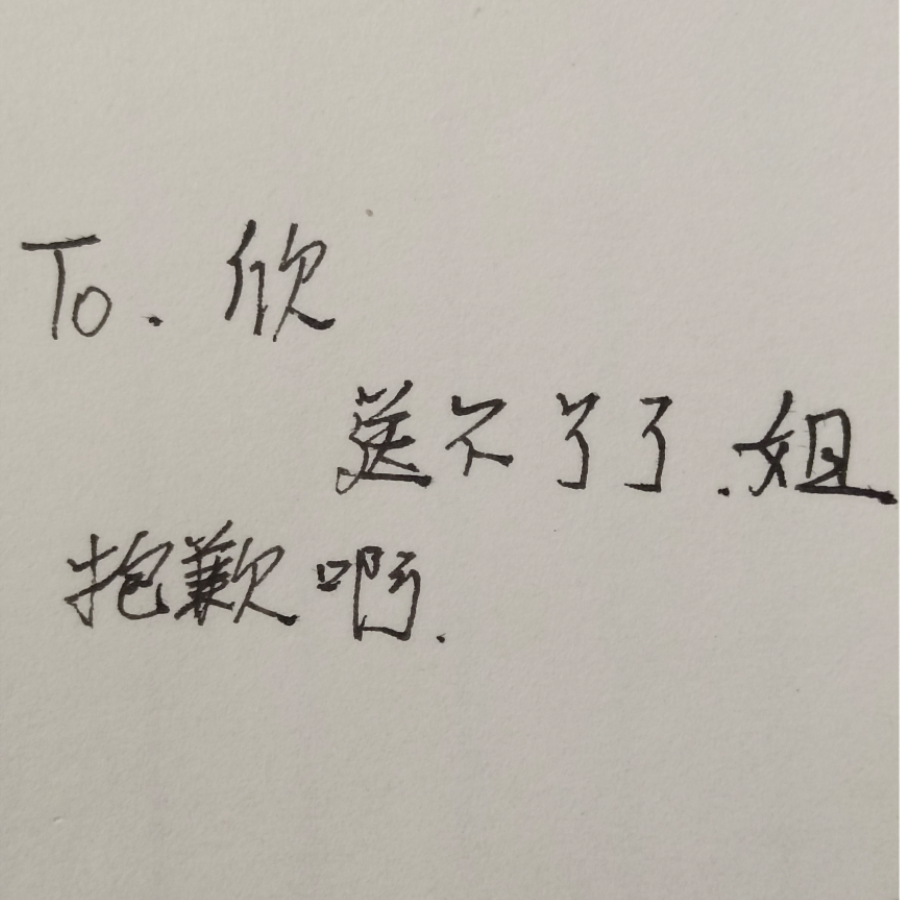 To. 欣
送不了了.姐
抱歉啊.